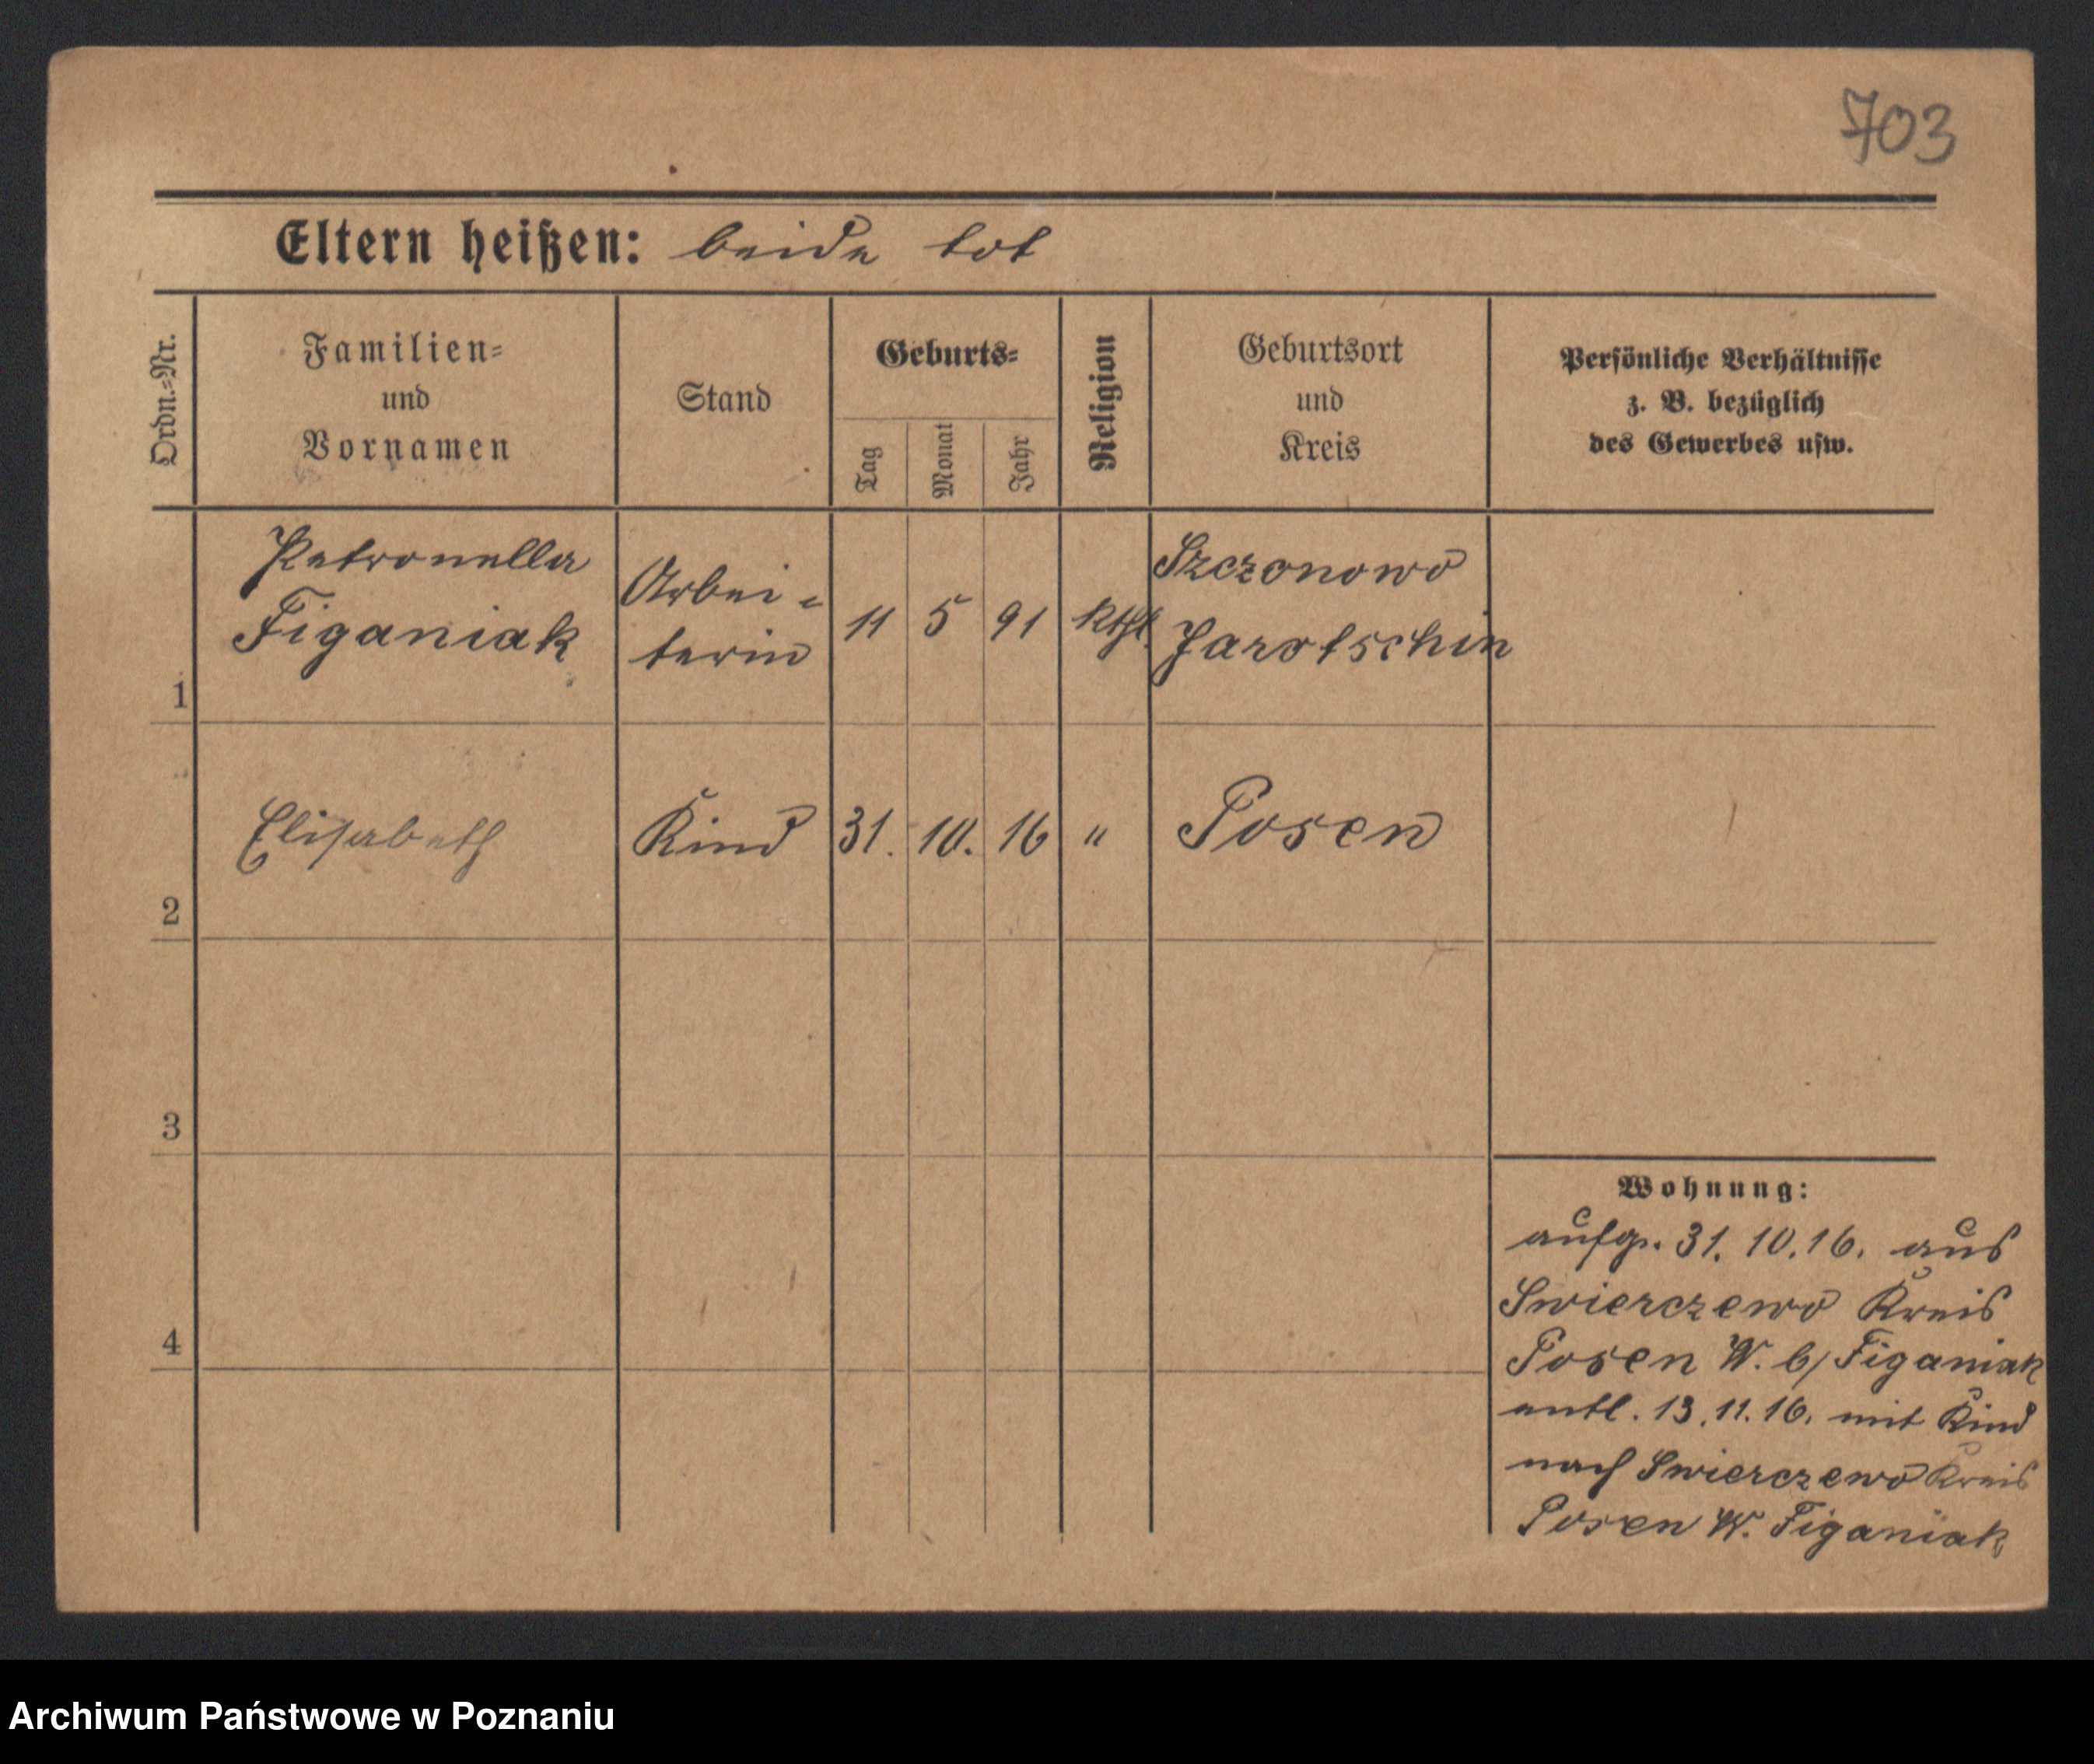 703
Eltern heißen: beide tot
Ordn.=Nr.
Familien=
und
Vornamen
Stand
Geburts=
Tag
Monat
Jahr
Religion
Geburtsort
und
Kreis
Persönliche Verhältnisse
z. B. bezüglich
des Gewerbes usw.
1
Petronella
Figaniak
Arbei=
terin
11 5 91
kthl.
Szczonowo
Jarotschin
2
Elisabeth
Kind
31. 10. 16 "
Posen
3
4
Wohnung:
aufg. 31. 10. 16. aus
Swierczewo Kreis
Posen W. b/ Figaniak
entl. 13. 11. 16. mit Kind
nach Swierczewo Kreis
Posen W. Figaniak
Archiwum Państwowe w Poznaniu